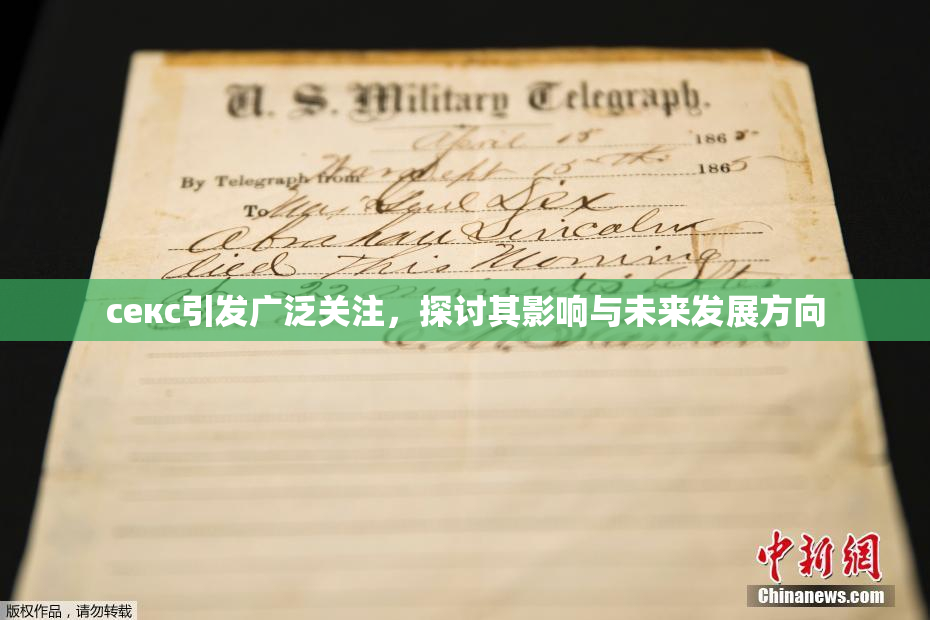 U. S. Military Telegraph.
April 15 1865
By Telegraph from War Dept 15th 1865
To Maj Genl Dix
Abraham Lincoln
died this morning
22 minutes after
секс引发广泛关注，探讨其影响与未来发展方向
E. M. Stanton
中新网
Chinanews.com
版权作品，请勿转载